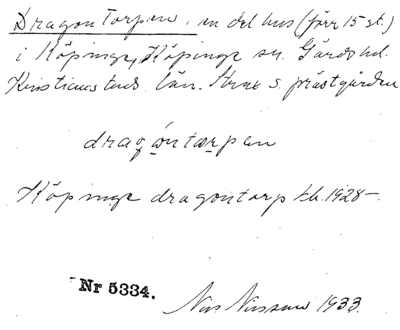 Dragontorpen, en del hus (förr 15 st.)
i Köpinge, Köpinge sn. Gärds hd.
Kristianstads län. Strax s. prästgården
dragōntωrpen
Köpinge dragontorp kb. 1928–.
Nr 5334.
Nils 1933.